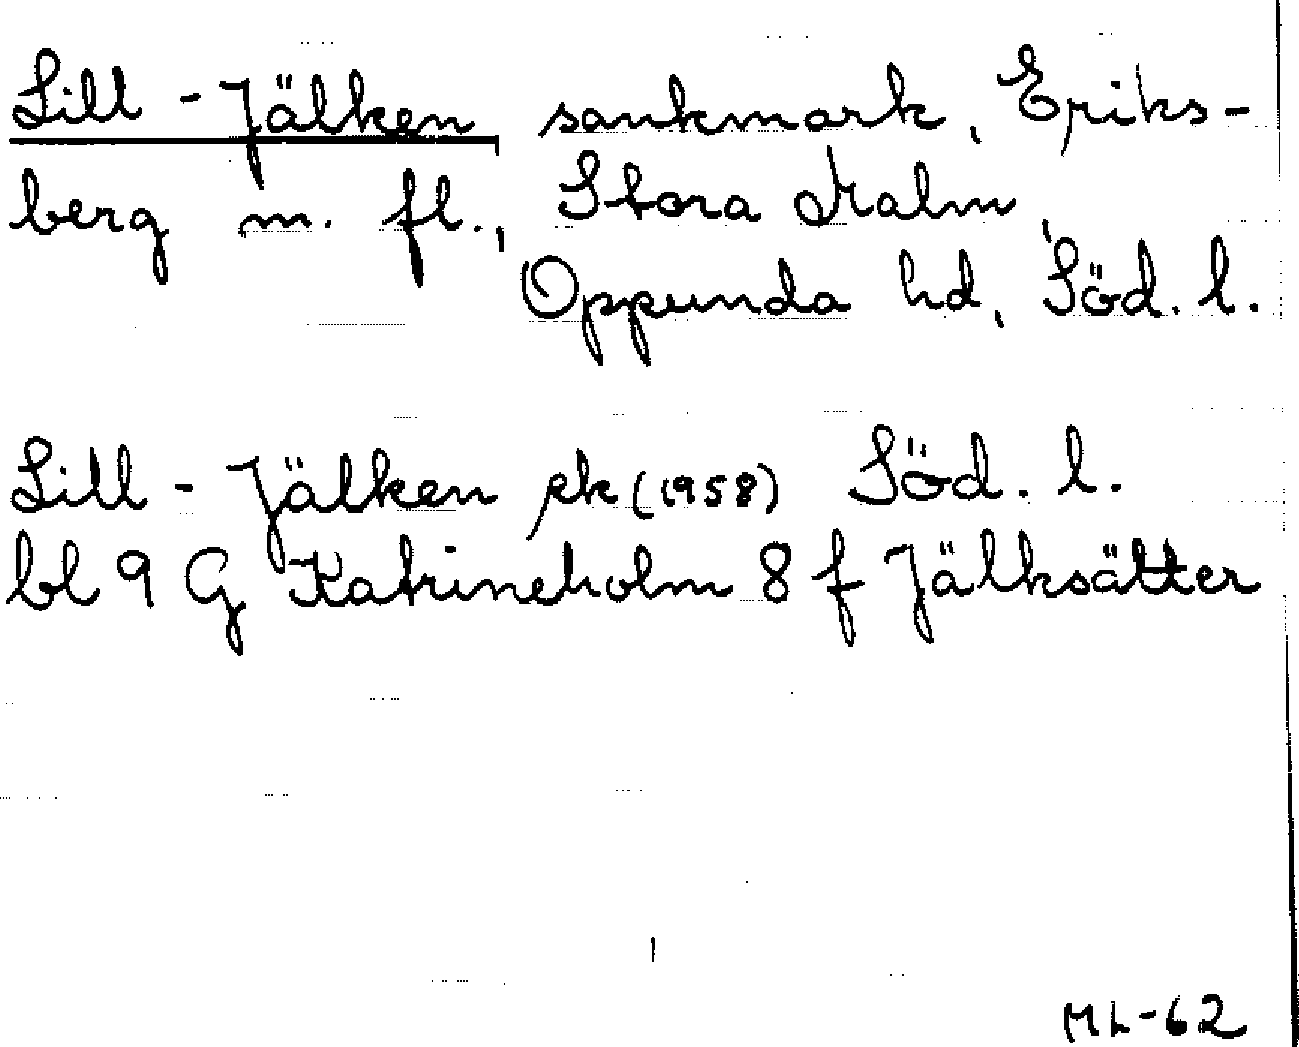 Lill-Jälken, sankmark, Eriks-
berg m. fl., Stora Malm,
Oppunda hd, Söd. l.
Lill-Jälken ek (1958) Söd. l.
bl 9 G Katrineholm 8 f Jälksätter
ML-62